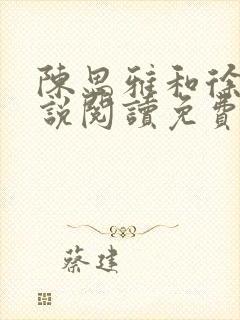 陳思雅和徐
說閱讀免費
蔡建